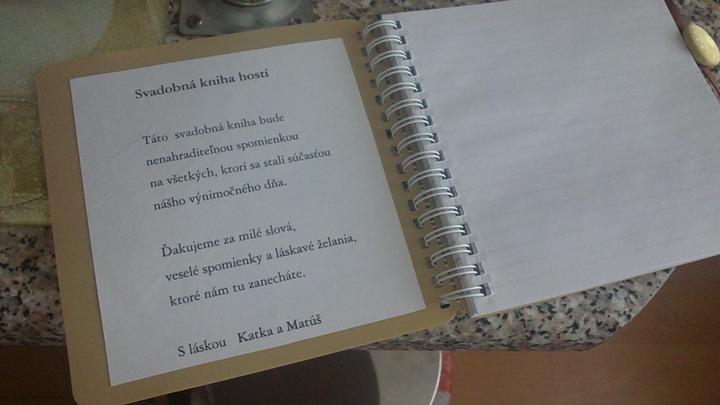 Svadobná kniha hostí
Táto svadobná kniha bude
nenahraditeľnou spomienkou
na všetkých, ktorí sa stali súčasťou
nášho výnimočného dňa.
Ďakujeme za milé slová,
veselé spomienky a láskavé želania,
ktoré nám tu zanecháte.
S láskou Katka a Matúš